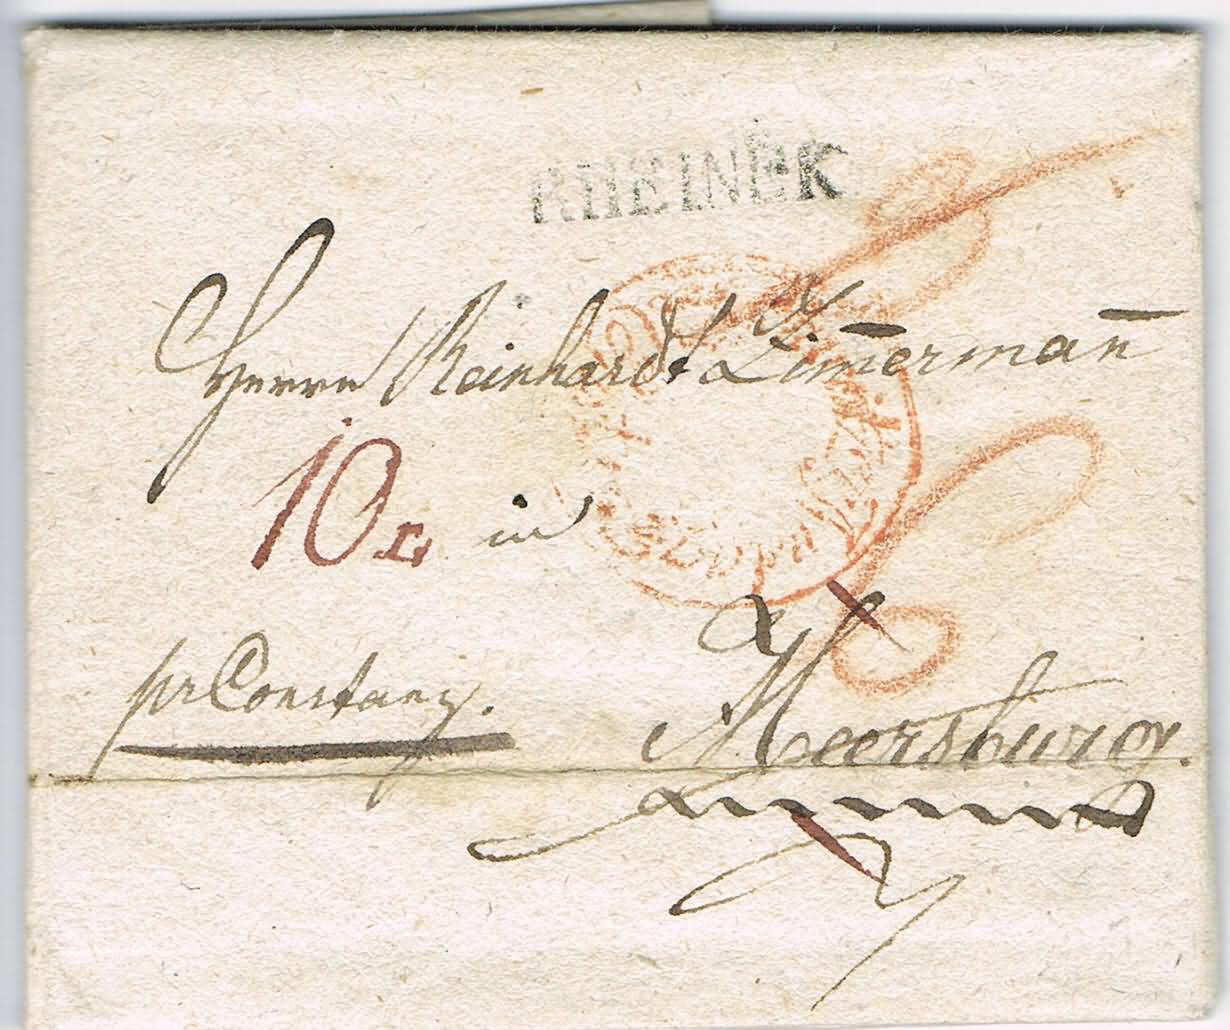 RHEINEK
Herrn Reinhardt Zim̄erman̄
10 x. in
pr Constanz.
Meersburg.